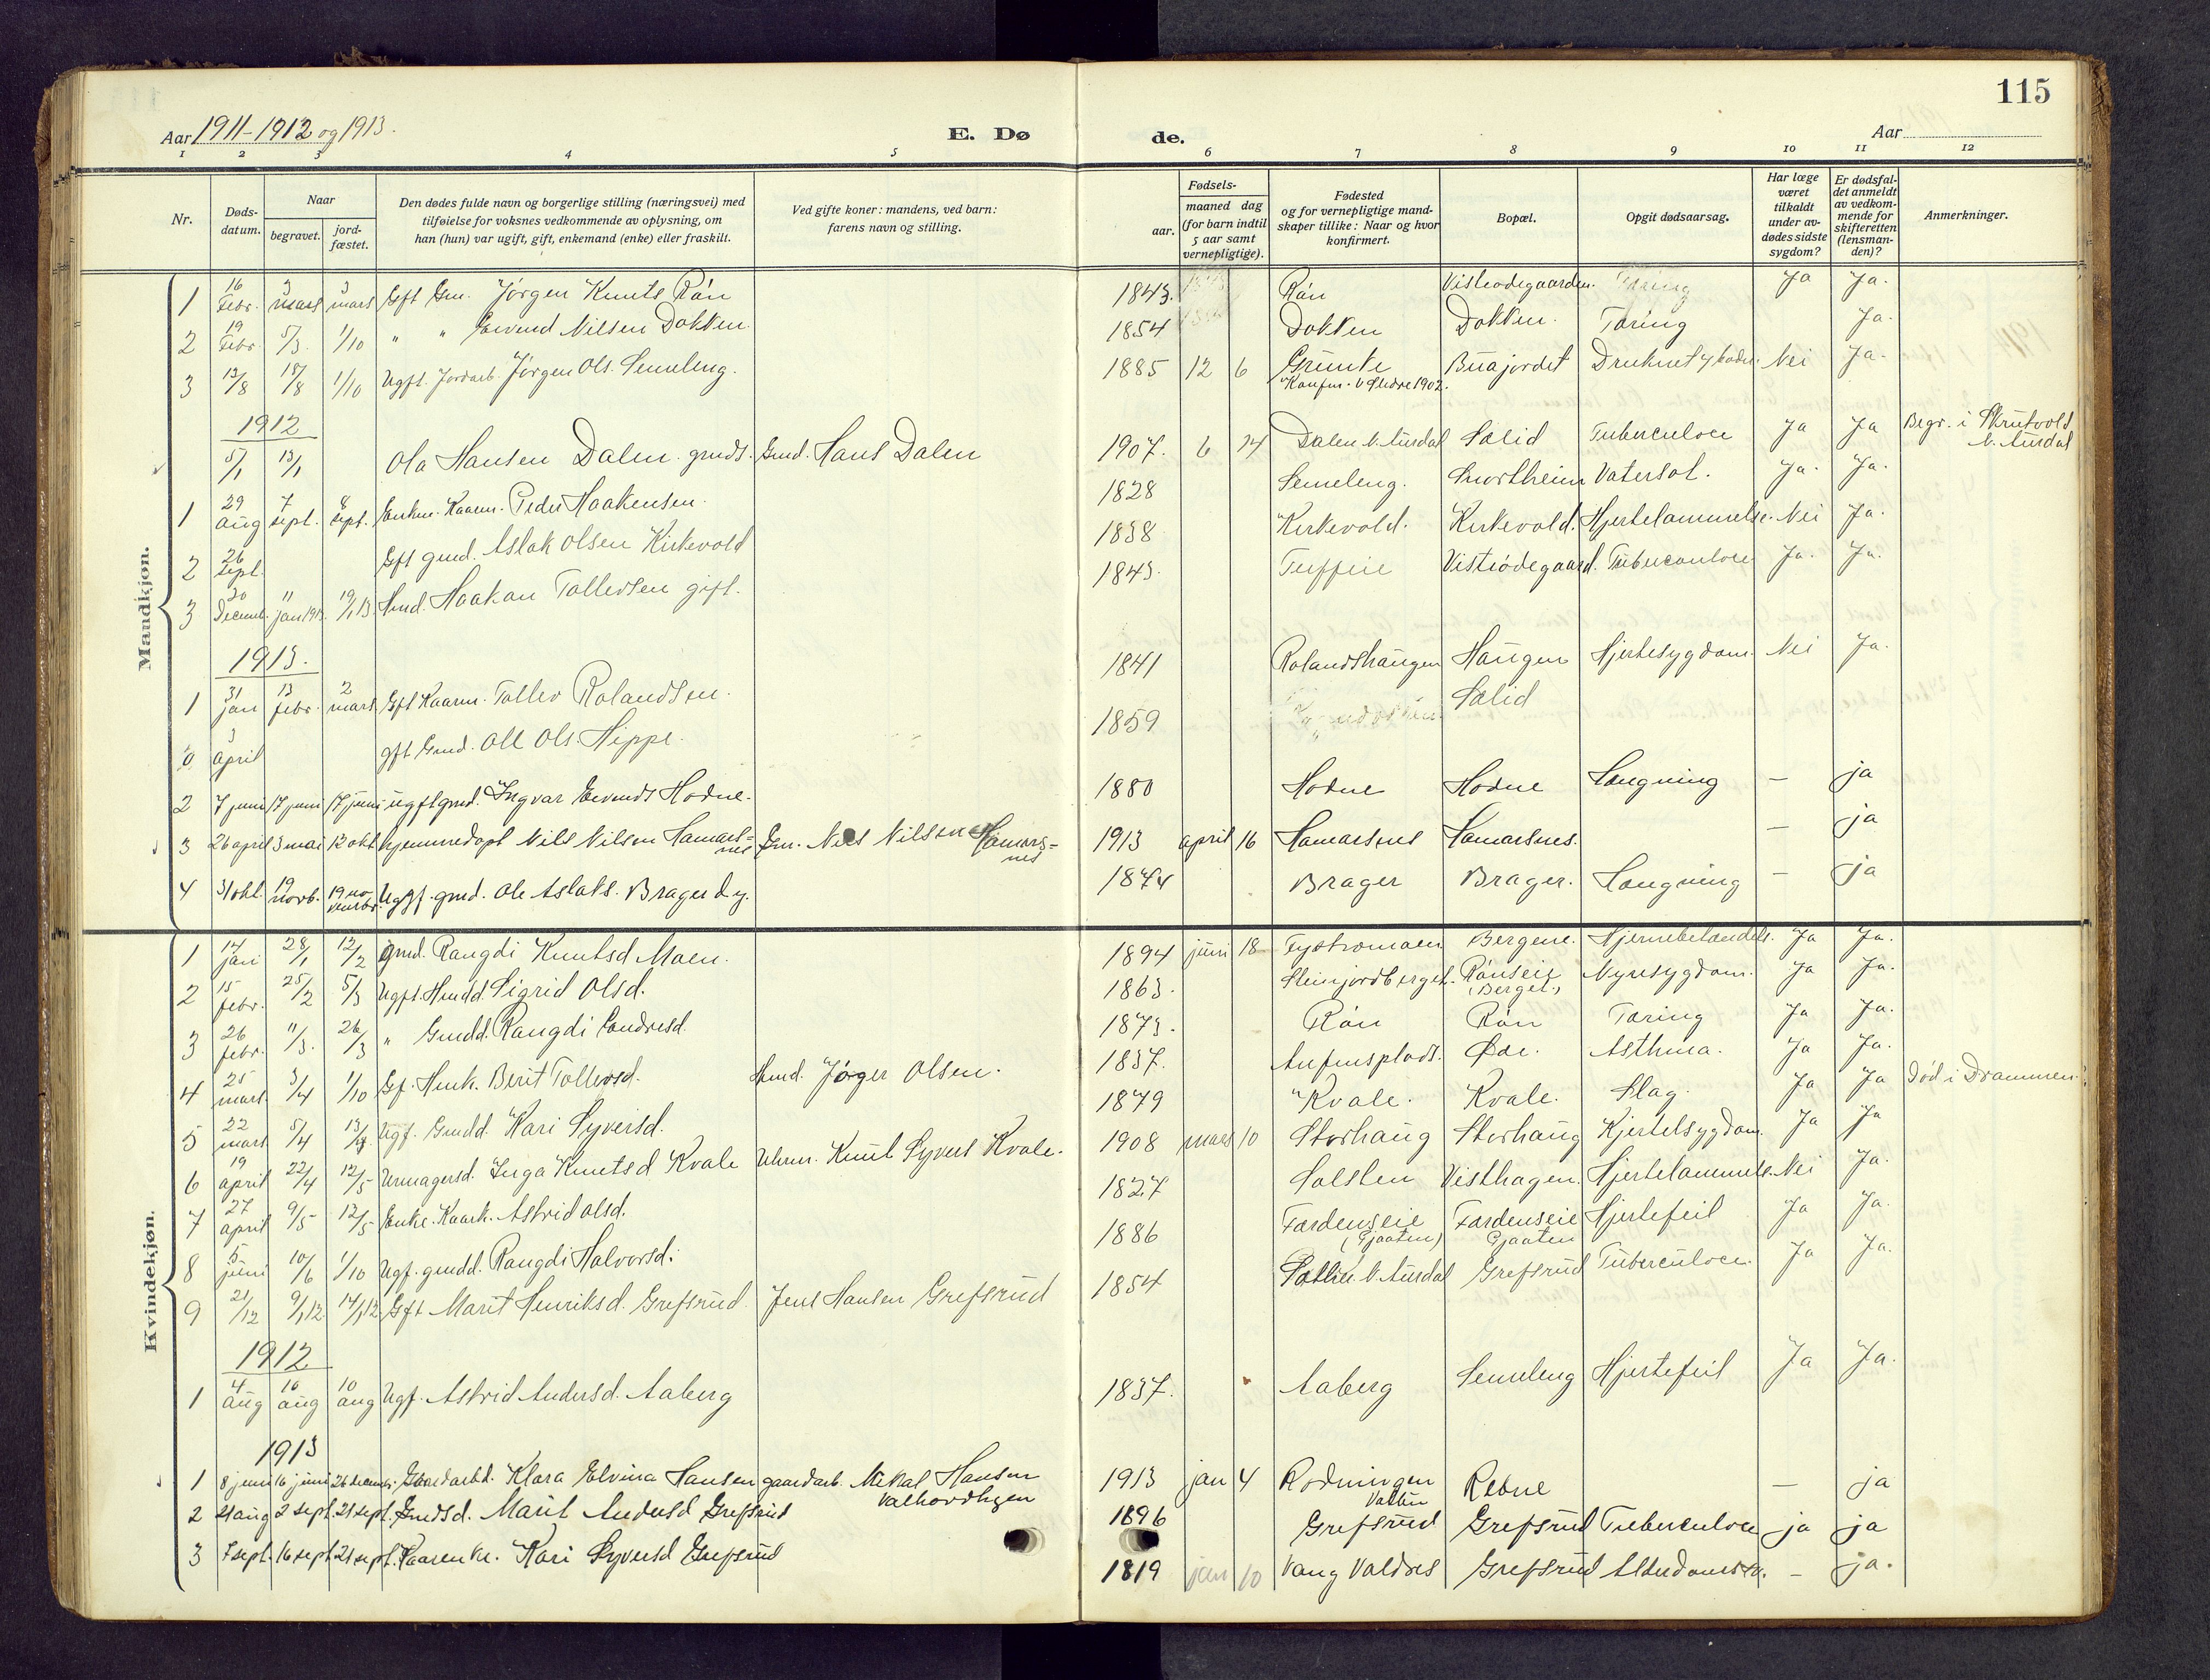 115
Aar 1911-1912 og 1913.
E. Døde.
Aar
1 2 3 4 5 6 7 8 9 10 11 12
Nr.
Døds-datum.
Naar
begravet.
jord-fæstet.
Den dødes fulde navn og borgerlige stilling (næringsvei) med
tilføielse for voksnes vedkommende av oplysning, om
han (hun) var ugift, gift, enkemand (enke) eller fraskilt.
Ved gifte koner: mandens, ved barn:
farens navn og stilling.
Fødsels-
aar.
maaned dag
(for barn indtil
5 aar samt
vernepligtige).
Fødested
og for vernepligtige mand-
skaper tillike: Naar og hvor
konfirmert.
Bopæl.
Opgit dødsaarsag.
Har læge
været
tilkaldt
under av-
dødes sidste
sygdom?
Er dødsfal-
det anmeldt
av vedkom-
mende for
skifteretten
(lensman-
den)?
Anmerkninger.
Mandkjøn.
1 16 Febr. 3 mars 3 mars Gft Gm. Jørgen Knuts Røn 1843. Røn Vistrødegaarden. Tæring Ja Ja.
2 19 Febr. 5/3. 1/10 " " Eivind Nilsen Dokken 1854 Dokken Dokken. Tæring Ja.
3 13/8 18/8 1/10 Ugft. Jordarb. Jørgen Ols. Semeleng. 1885 12 6 Grunte Buajordet Druknet Nei Ja.
Konfm. V Slidre 1902.
1912
5/1 13/1 Ola Hansen Dalen. gmds. Gmd. Hans Dalen 1907. 6 Dalen N. Aurdal Sælid Tuberculose Ja Ja Begr. i Skrutvold N. Aurdal
1 29 aug 7 sept. sept. Enkm. Kaarm. Peder Haakensen. 1828 Semeleng. Smørtheim Vatersot. Ja. Ja.
2 26 sept. Gft gmd. Aslak Olsen Kirkevold 1838 Kirkevold. Kirkevold. Hjertelammelse. Nei Ja.
3 30 Decemb. 11 jan 1913. 19/1 13 Hmd. Haakon Tollevsen gift. 1843. Vistrødegaard. Ja. Ja.
1913.
1 31 jan 13 febr. 2 mars Gft Kaarm. Tollev Rolandsen. 1841 Rolandshaugen Haugen Hjertesygdom. Nei Ja.
3 april gft Gmd. Ole Ols. Hippe. 1859 Sælid
2 7 juni 17 juni 17 juni ugft gmd. Ingvar Eivinds Hodne. 1880 Hodne Hodne Længning — ja
3 26 april 3 mai 12 okt hjemmedøpt Nils Nilsen Hamarsnes Gm. Nils Nilsen Hamarsnes 1913 april 16 Hamarsnes Hamarsnes. — ja
4 31 okt. 19 novb. 19 november. Ugf. gmd. Ole Aslaks. Brager d.y. 1844 Brager Brager. Længning — ja
Kvindekjøn.
1 14 jan 28/1 12/2 gmd. Rangdi Knutsd Moen. 1894 juni 18 Bergene. Ja Ja.
2 15 febr. 25/2 5/3 Ugft. Hmdd. Sigrid Olsd. 1863. Steinjordberget. Rønseie (Berget) Nyresygdom. Ja Ja.
3 26 febr. 11/3. 26/3 " Gmdd. Rangdi Sandresd. 1873. Røn Røn Tæring Ja Ja.
4 25 mars 3/4 1/10 Gf. Hmk. Berit Tollevsd. Hmd. Jørger Olsen. 1837. Øde. Asthma. Ja Ja.
5 22 mars 5/4 Ugf. Gmdd. Kari Syversd. 1879 Kvale. Kvale. Slag. Ja Ja Død i Drammen.
6 19 april 22/4 12/5 Urmagersd. Inga Knutsd Kvale Uhrm. Knut Syvers Kvale. 1908 mars 10 Storhaug Storhaug Kjertelsygdom. Ja Ja
7 27 april 9/5 12/5 Enke. Kaark. Astrid Olsd. 1827 Holsten Visthagen. Hjertelammels. Nei Ja.
8 5 juni 10/6 1/10 Ugf. gmdd. Rangdi Halvorsd. 1886 Færdenseie (Gjaaten) Færdenseie Gjaaten Hjertefeil Ja Ja.
9 21/12 9/1 12. 14/1 12 Gft Marit Henriksd. Grefsrud. Jens Hansen Grefsrud 1854 N. Aurdal Grefsrud Tuberculose. Ja Ja.
1912
1 4 aug 16 aug 10 aug Ugf. Astrid Andersd. Aaberg 1837. Aaberg Semeleng Hjertefeil Ja Ja.
1913
1 8 juni 16 juni 26 decembr. Gaardarbd. Klara Elvina Hansen gaardarb. Mikal Hansen 1913 jan 4 Rebne — ja
2 21 aug 2 sept. 21 sept. Gmdsd. Marit Andersd Grefsrud 1896 Grefsrud Grefsrud Tuberculose ja ja
3 7 sept. 16 sept 21 sept. Kaarenke. Kari Syversd Grefsrud 1819 jan 10 Vang Valdres Grefsrud — ja.